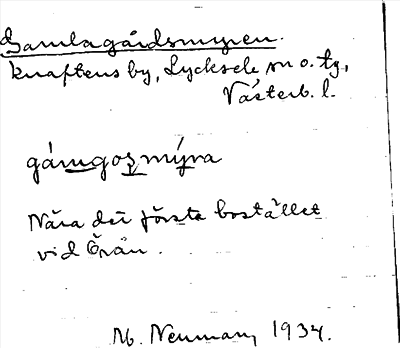 Gamlagårdsmyren.
Knaftens by, Lycksele sn o. tg,
Västerb. l.
gámgoʒmýra
Nära det första bostället
vid Örån.
M. Neuman, 1934.